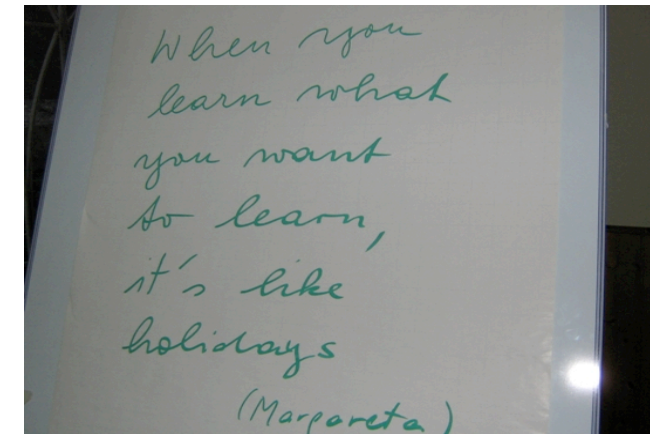 When you
learn what
you want
to learn,
it's like
holidays
(Margareta)